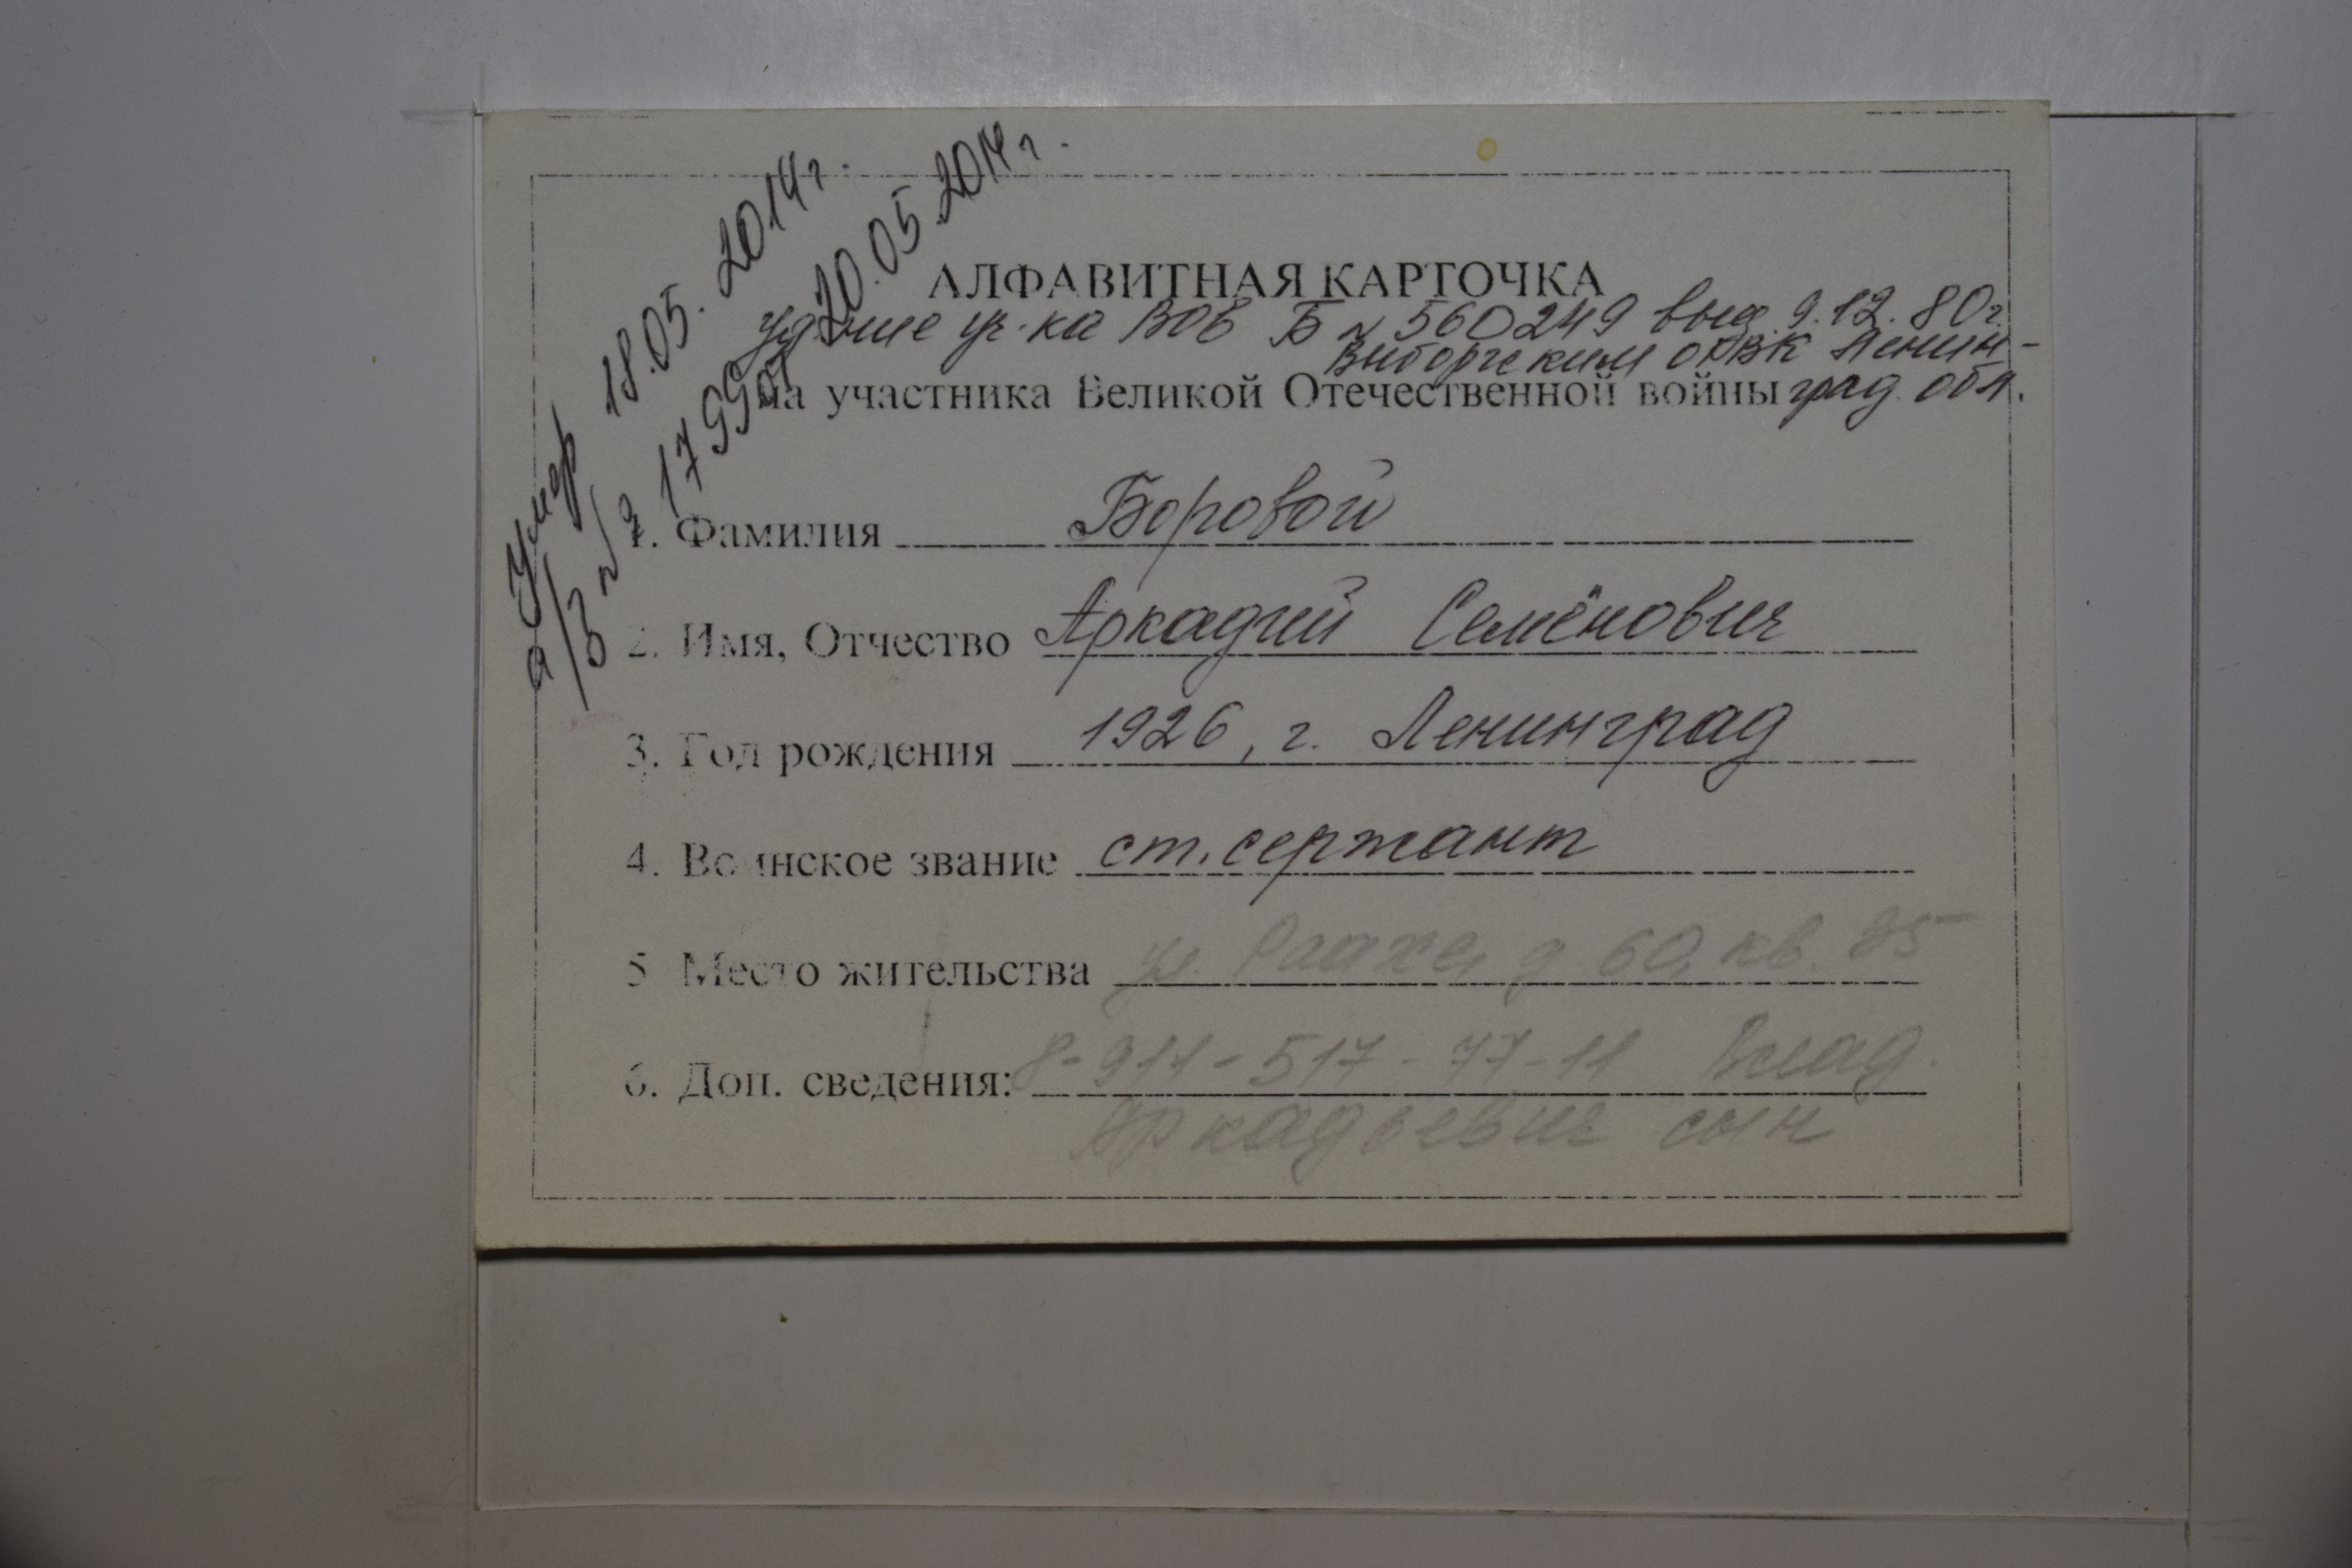 Умер 18.05.2014г.
а/з № 1799 от 20.05.2014г.
АЛФАВИТНАЯ КАРТОЧКА
уд-ние уч-ка ВОВ Б № 560249 выд. 9.12.80г.
Выборгским ОРВК Ленин-
град. обл.
на участника Великой Отечественной войны
1. Фамилия Боровой
2. Имя, Отчество Аркадий Семёнович
3. Год рождения 1926, г. Ленинград
4. Воинское звание ст. сержант
5. Место жительства ул. д. 60, кв.
6. Доп. сведения: 8-911-517-77-11 Влад.
Аркадьевич сын